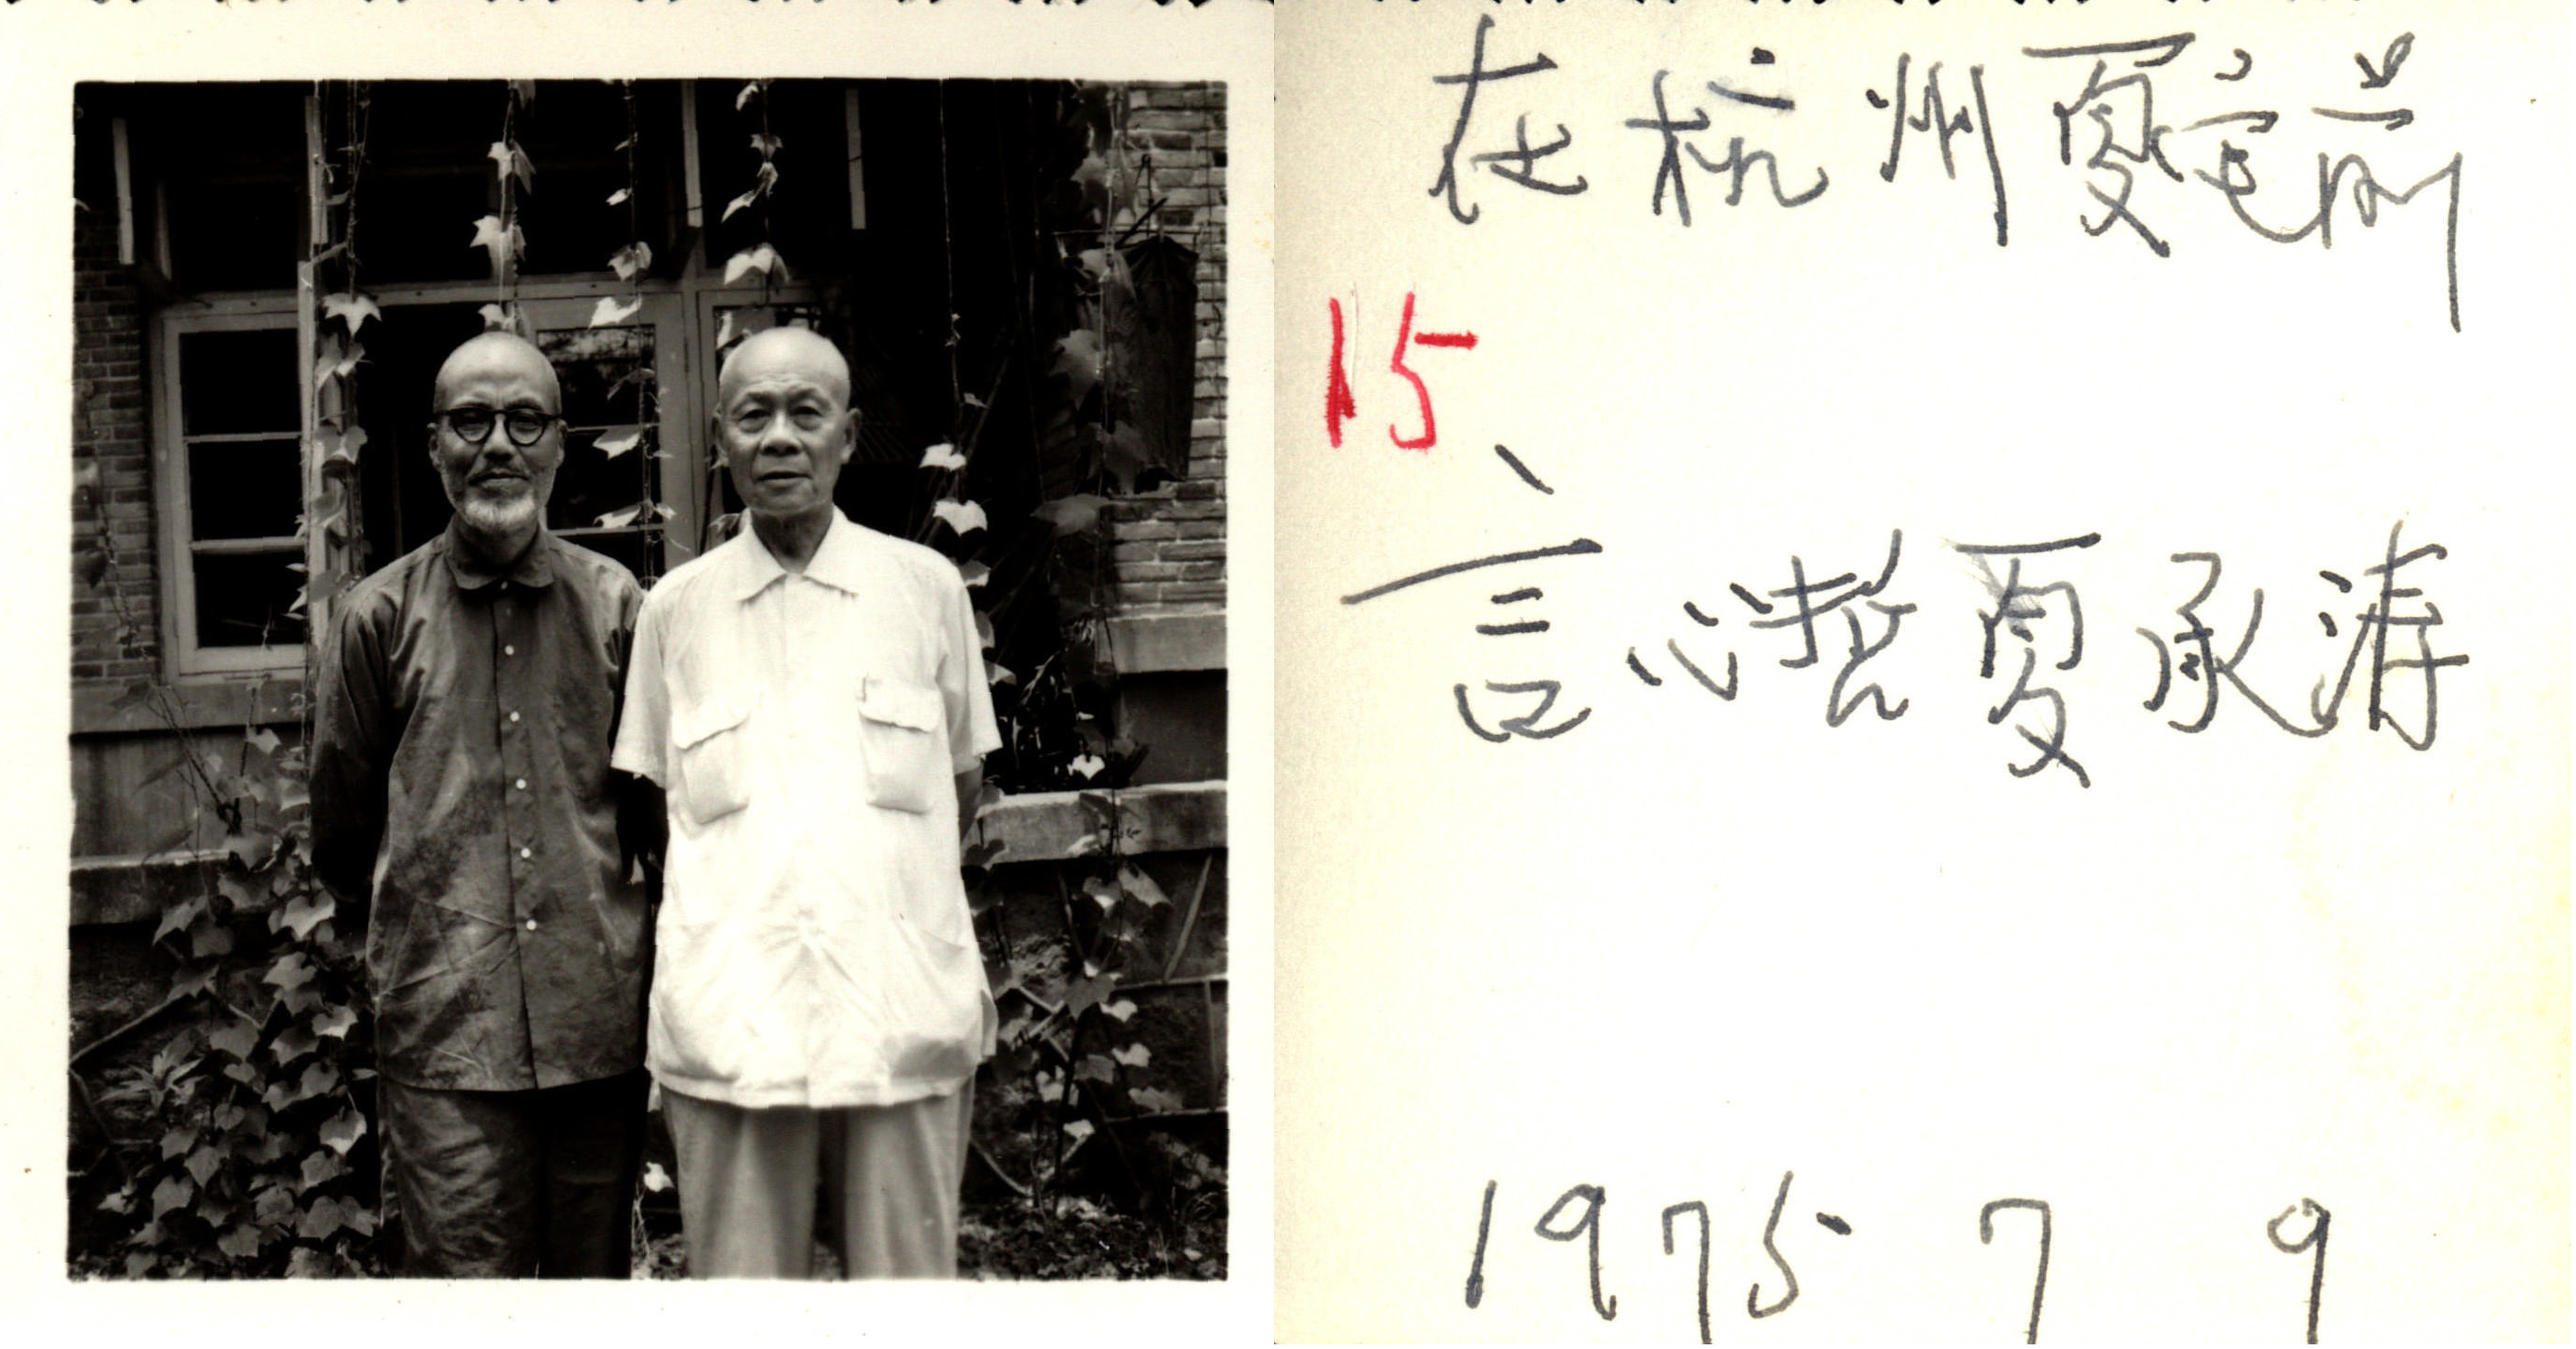 在杭州夏宅前
15
言心哲 夏承涛
1975 7 9